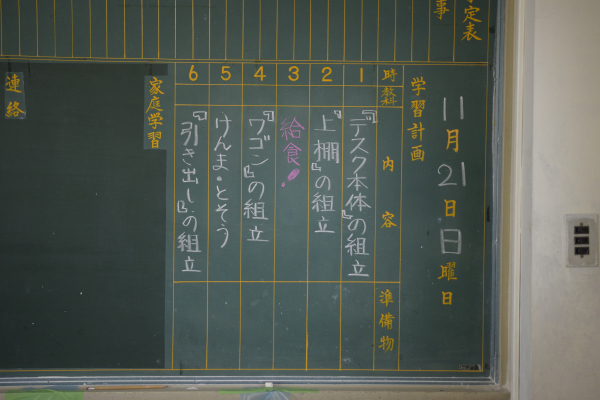 事
定表
11月21日日曜日
学習計画
時 教科 内容 準備物
1 『デスク本体』の組立
2 『上棚』の組立
3 給食!
4 『ワゴン』の組立
5 けんま・とそう
6 『引き出し』の組立
家庭学習
連絡